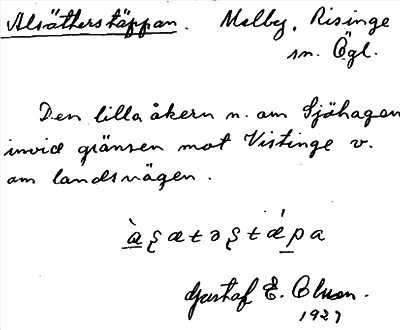 Alsätterstäppan. Melby, Risinge
sn. Ögl.
Den lilla åkern n. om Sjöhagen
invid gränsen mot Vistinge v.
om landsvägen.
Gustaf E. Olson.
1927